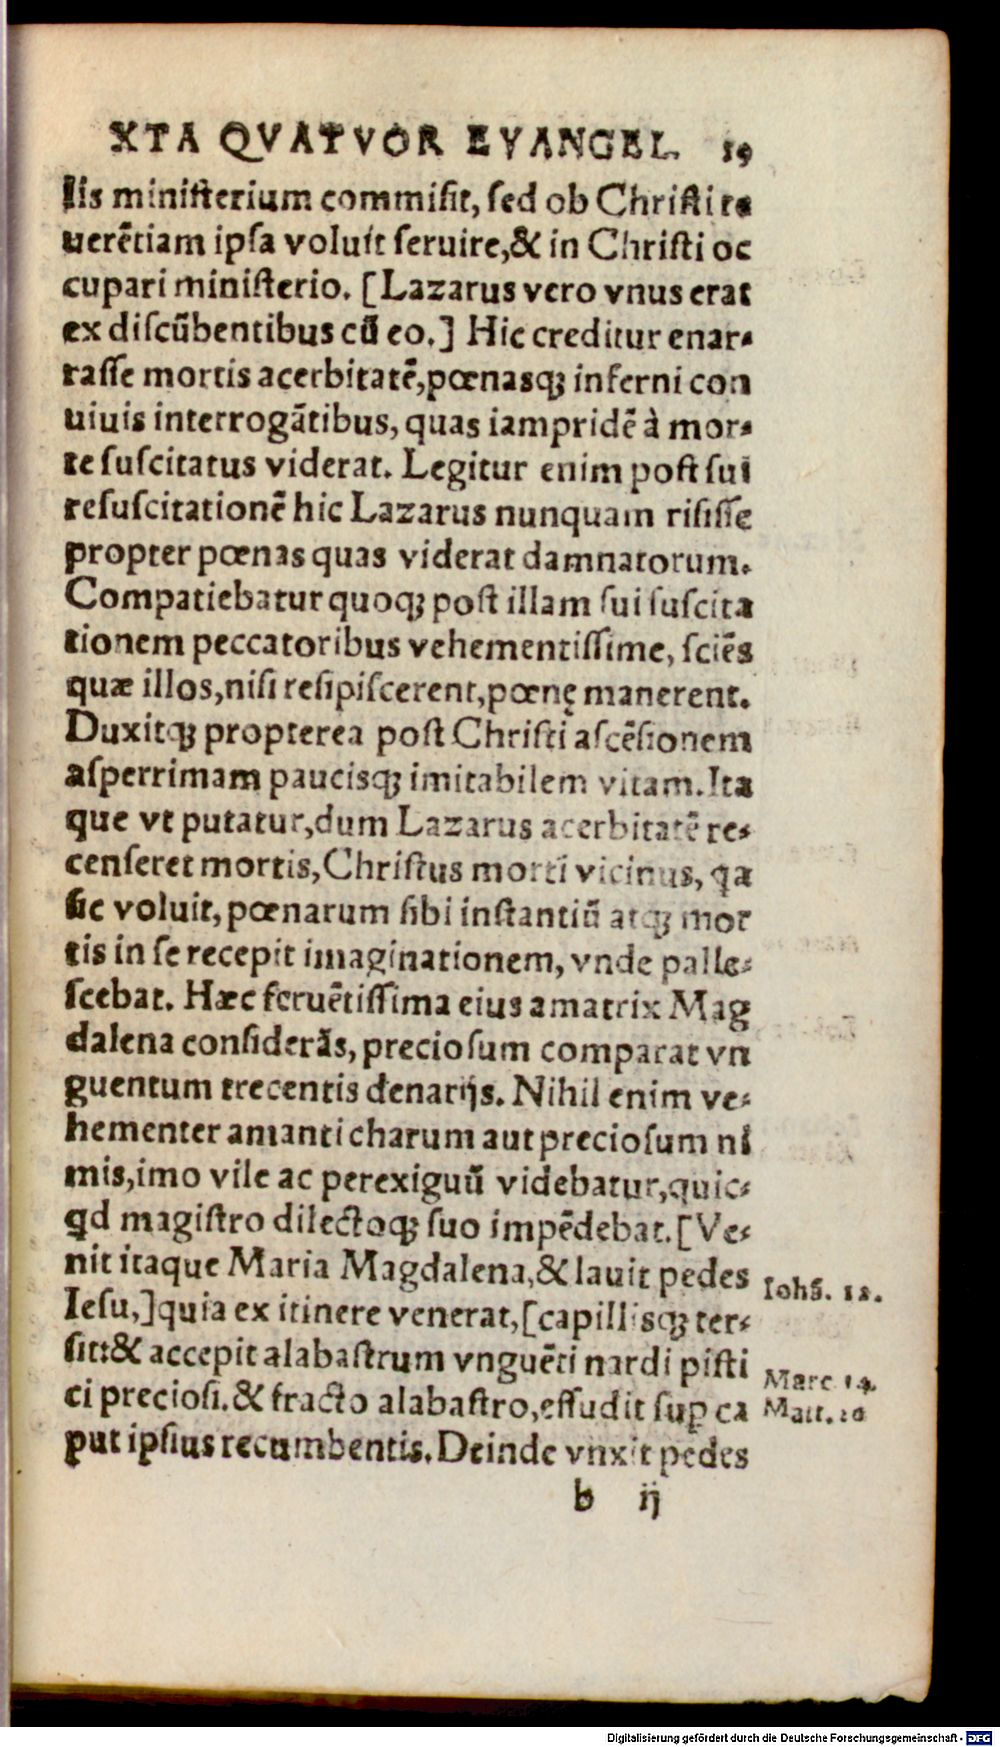 XTA QVATVOR EVANGEL. 19
lis miniſterium commiſit, ſed ob Chriſti re
uerẽtiam ipſa voluit ſeruire,& in Chriſti oc
cupari miniſterio. [Lazarus vero vnus erat
ex diſcũbentibus cũ eo.] Hic creditur enar-
raſſe mortis acerbitatẽ,pœnasq; inferni con
uiuis interrogãtibus, quas iampridẽ à mor-
te ſuſcitatus viderat. Legitur enim poſt ſui
reſuſcitationẽ hic Lazarus nunquam riſiſſe
propter pœnas quas viderat damnatorum.
Compatiebatur quoq; poſt illam ſui ſuſcita
tionem peccatoribus vehementiſſime, ſciẽs
quæ illos,niſi reſipiſcerent,pœnę manerent.
Duxitq; propterea poſt Chriſti aſcẽſionem
aſperrimam paucisq; imitabilem vitam.Ita
que vt putatur,dum Lazarus acerbitatẽ re-
cenſeret mortis,Chriſtus morti vicinus, qa
ſic voluit,pœnarum ſibi inſtantiũ atq; mor
tis in ſe recepit imaginationem, vnde palle-
ſcebat. Hæc feruẽtiſſima eius amatrix Mag
dalena conſiderãs, precioſum comparat vn
guentum trecentis denarijs. Nihil enim ve-
hementer amanti charum aut precioſum ni
mis,imo vile ac perexiguũ videbatur,quic-
qd magiſtro dilectoq; ſuo impẽdebat. [Ve-
nit itaque Maria Magdalena,& lauit pedes
Ieſu,]quia ex itinere venerat,[capillisq; ter-
ſit:& accepit alabaſtrum vnguẽti nardi piſti
ci precioſi.& fracto alabaſtro,effudit ſup ca
put ipſius recumbentis. Deinde vnxit pedes
b ij
Iohã. 12.
Marc 14.
Matt. 26
Digitalisierung gefördert durch die Deutsche Forschungsgemeinschaft - DFG